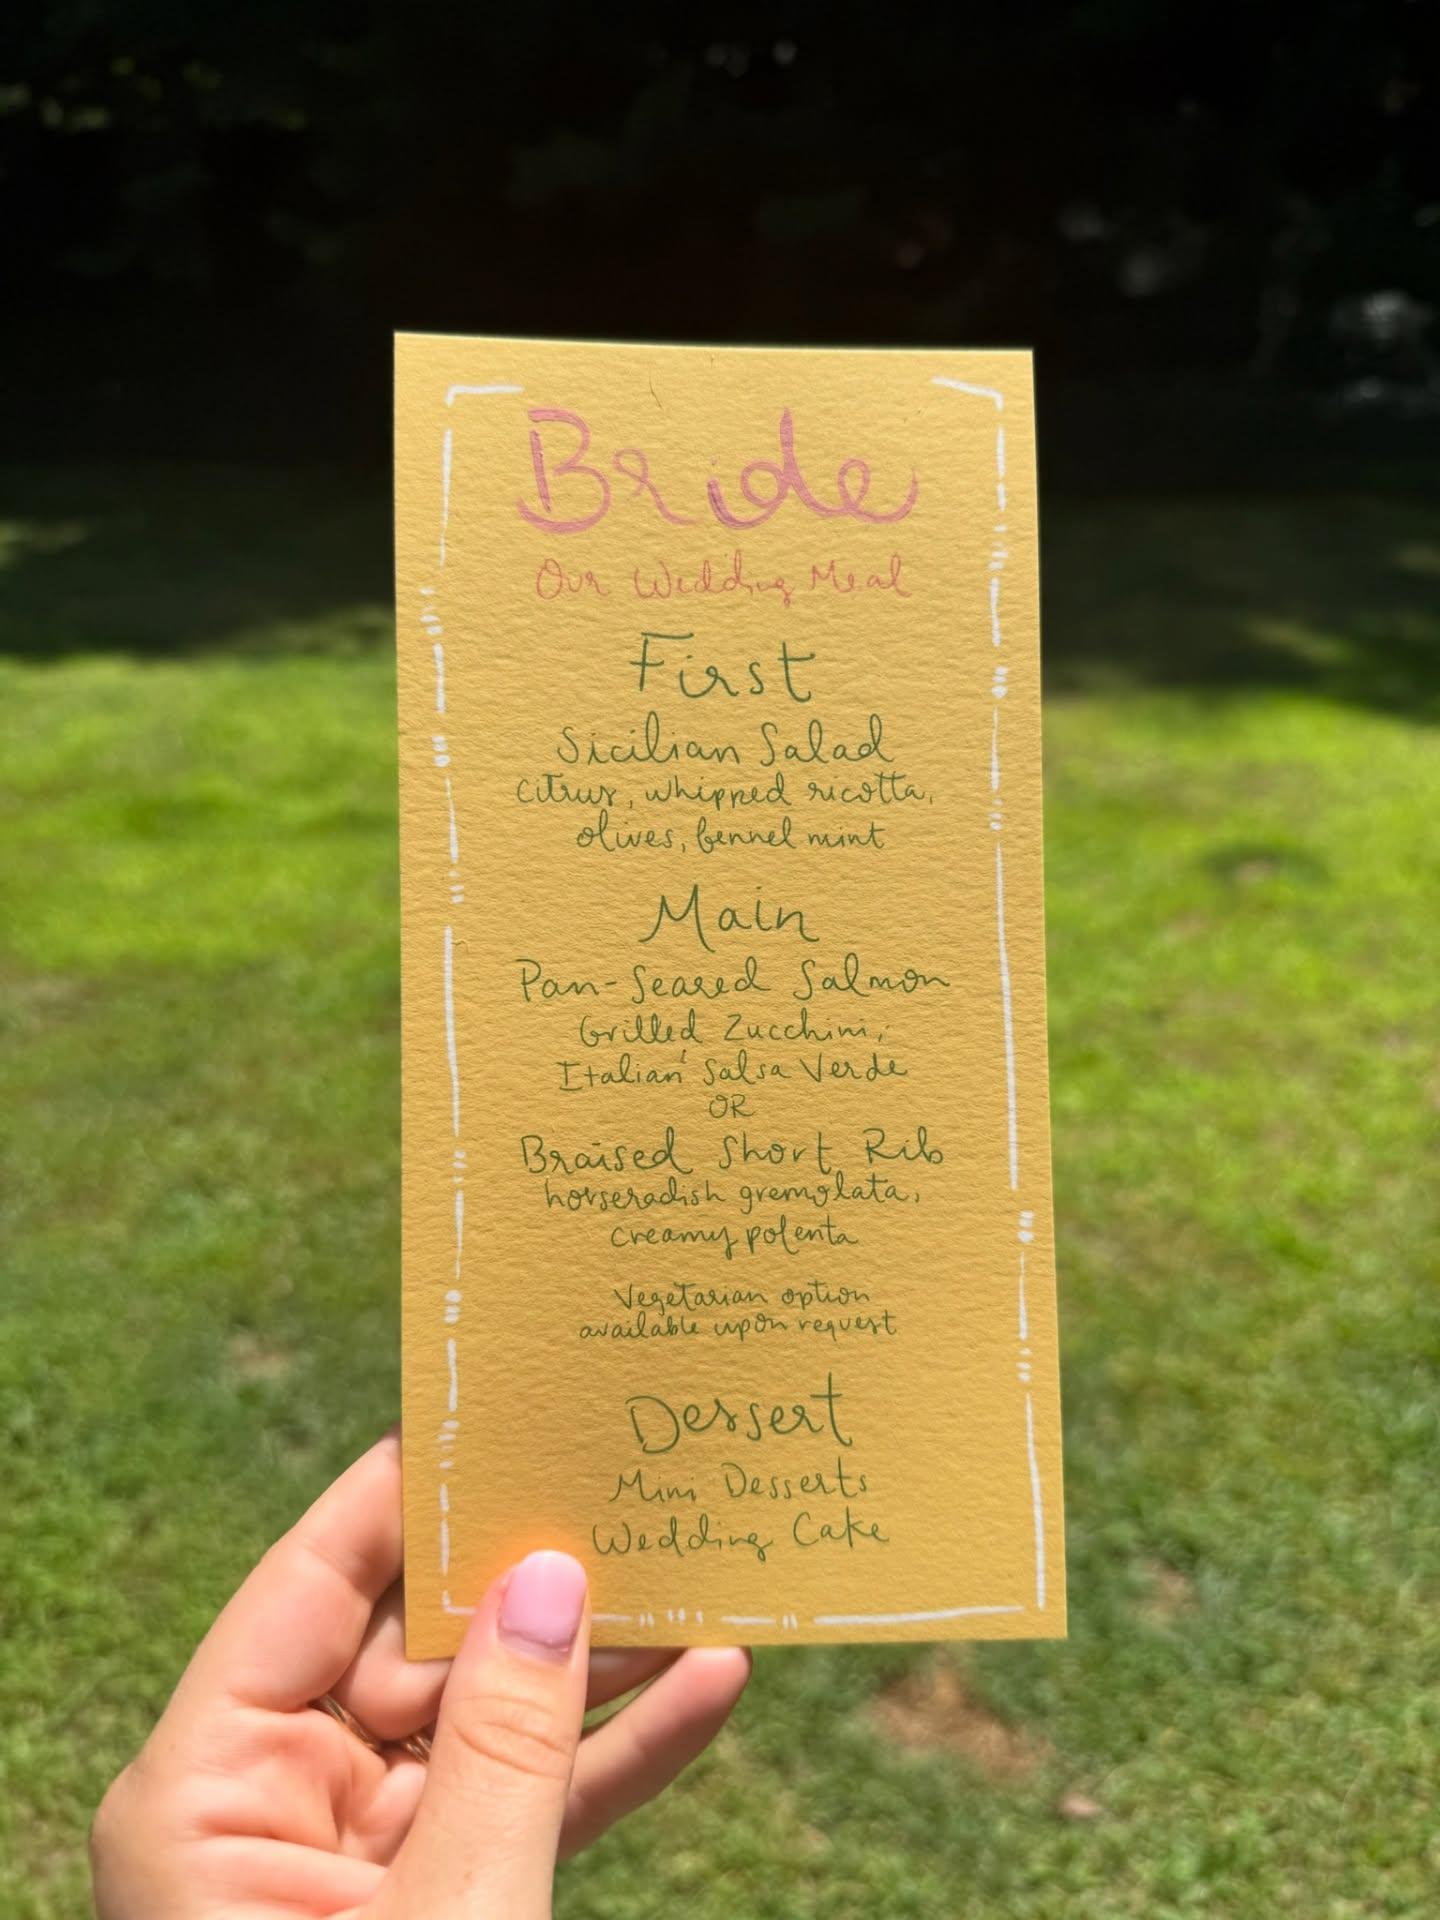 Bride
Our Wedding Meal
First
Sicilian Salad
citrus, whipped ricotta,
olives, fennel mint
Main
Pan-Seared Salmon
Grilled Zucchini,
Italian Salsa Verde
OR
Braised Short Rib
horseradish gremolata,
creamy polenta
Vegetarian option
available upon request
Dessert
Mini Desserts
Wedding Cake